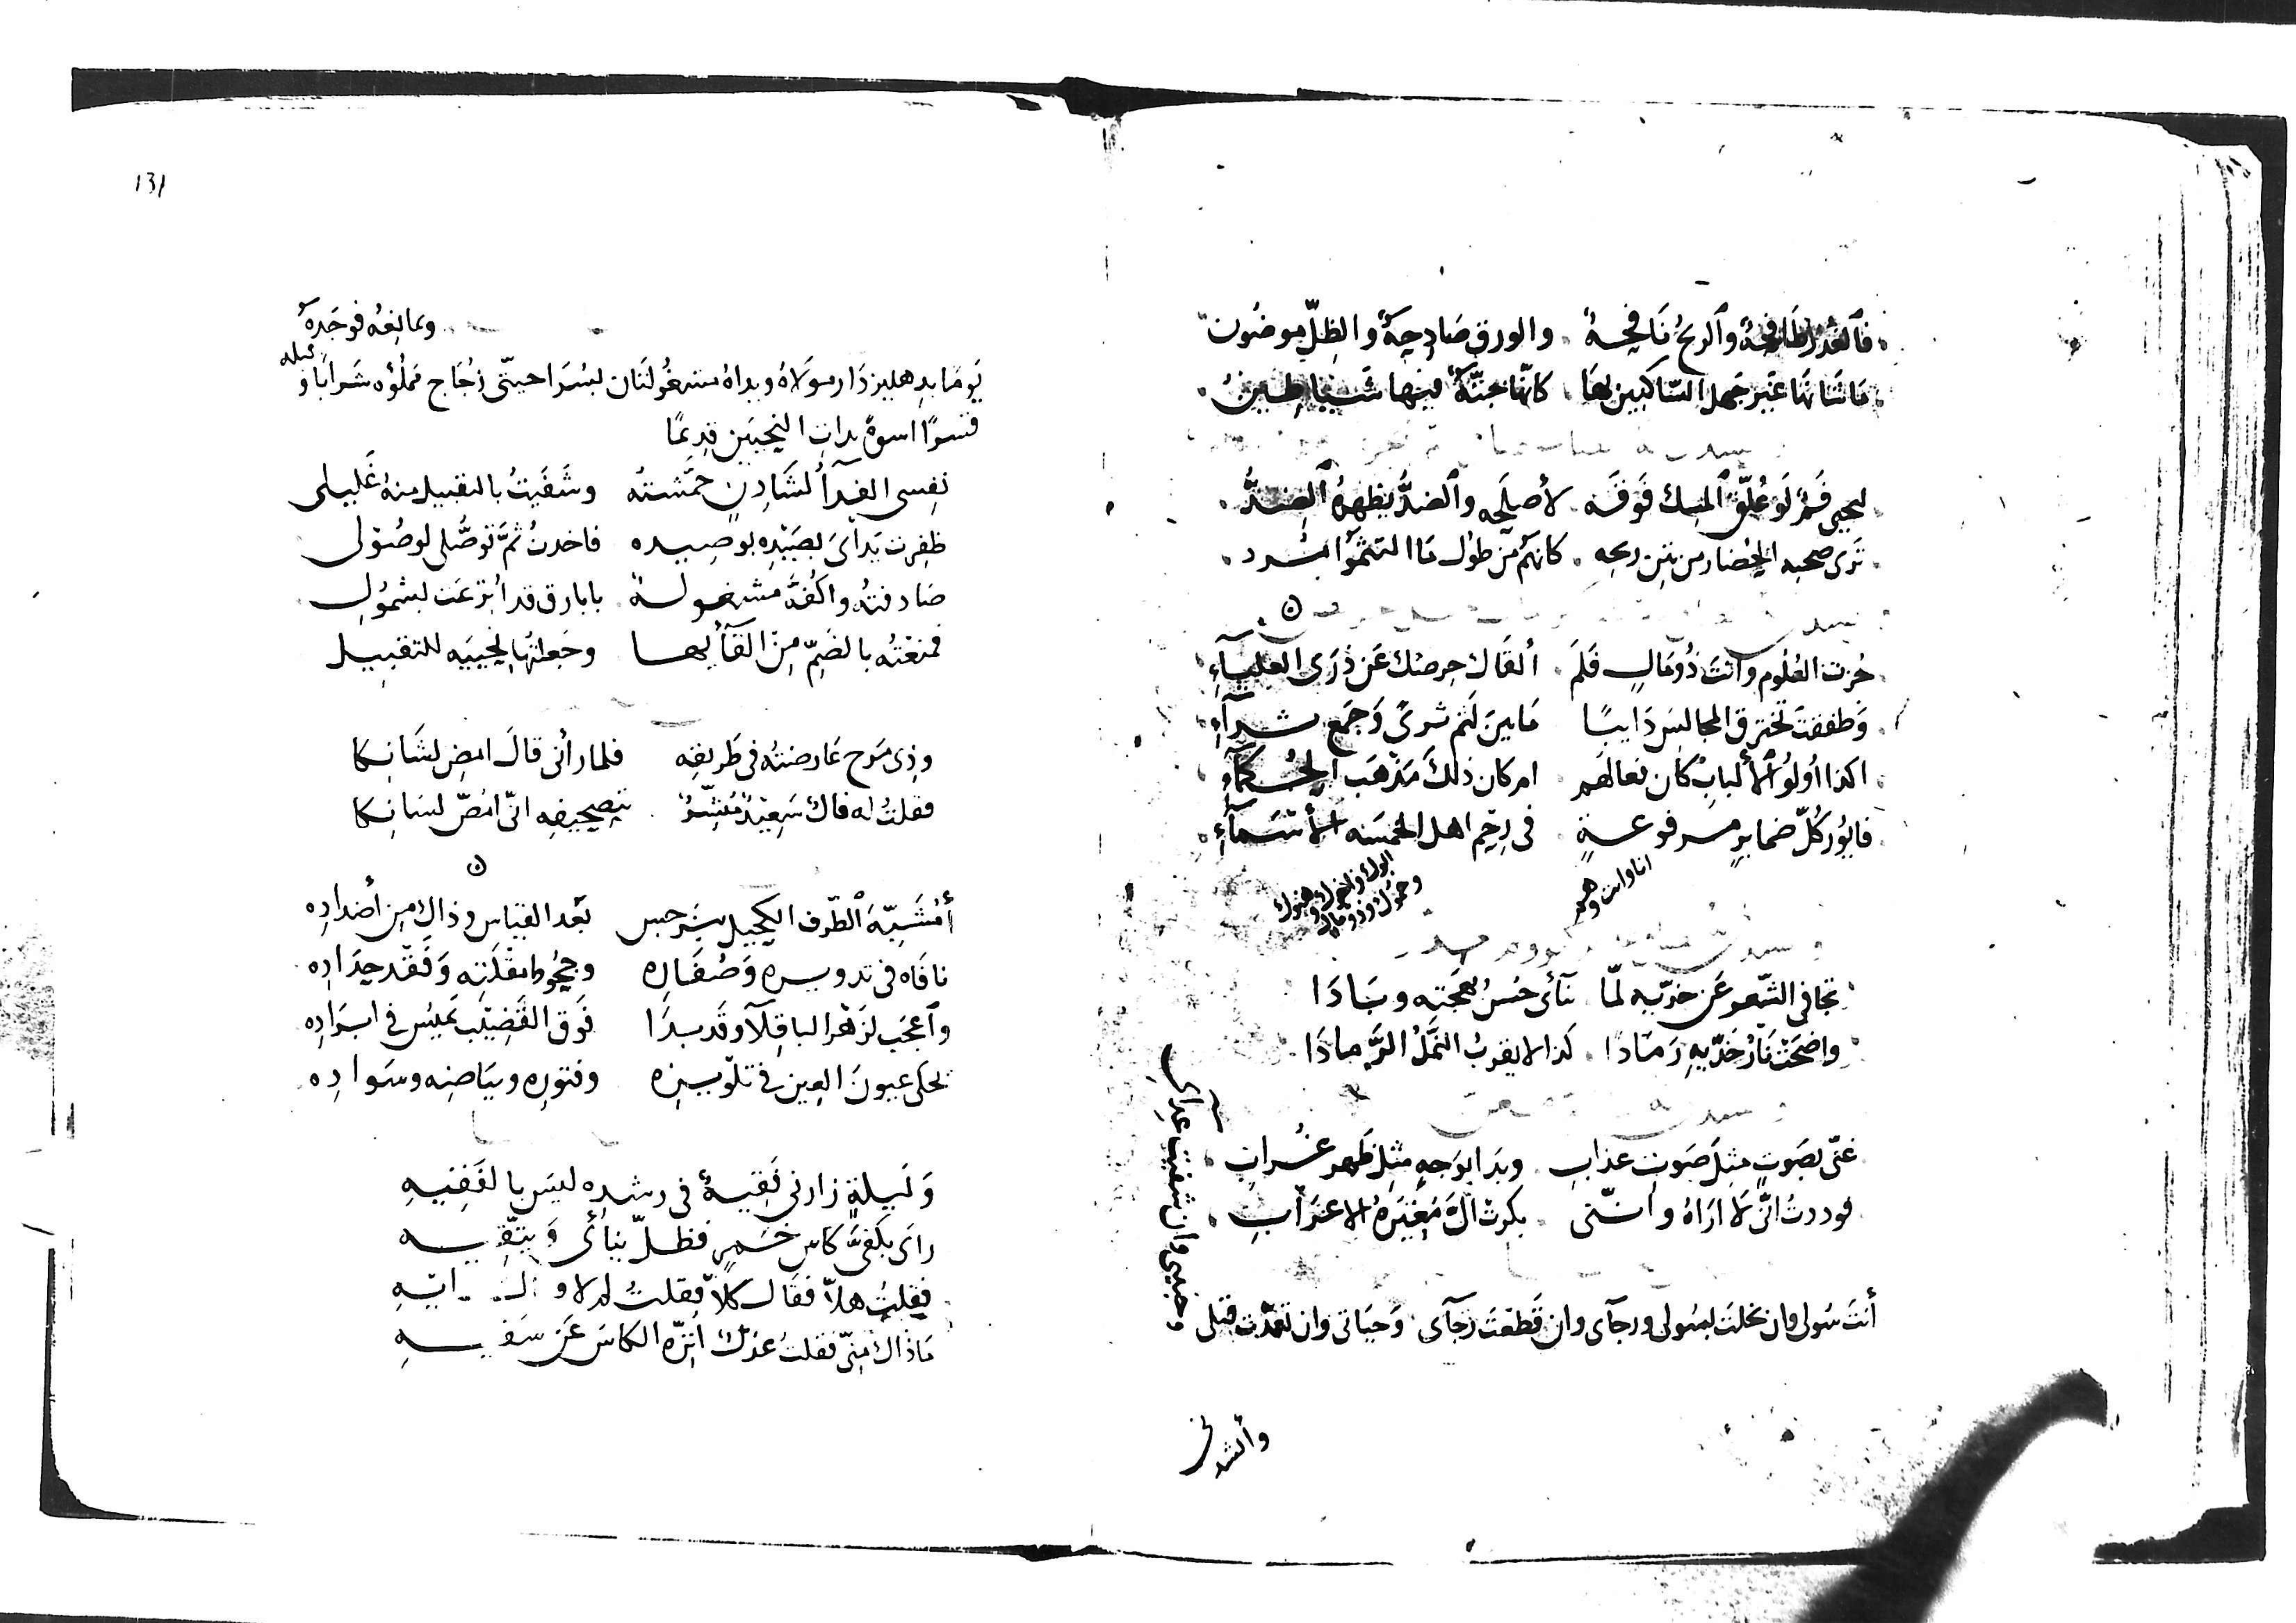 فالغدر طافحة والريح نافحة والورق صادحة والظل موضون
ما شانها غير جهل الساكنين بها كانها جنة فيها شياطين
ليحيى فم لو علق المسك فوقه لأصلحه والضد يظهره الضد
ترى صحبه الحضار من نتن ريحه كانهم من طول ما التثموا مرد
حزت العلوم وانت ذو مال فلم ألقاك حرصك عن ذرى العلياء
وطفقت تخترق المجالس دايبًا ما بين لثم ثرىً وجمع شراء
اكذا أولو الألباب كان فعالهم ام كان ذلك مذهب الحكماء
كل ضماير مرفوعة في اهل الخمسه الأسماء
انا وانت وهو
ابوك واخوك وهنوك
وحموك وذو مال
تجافى الشعر عن خديه لما تنأى حسن بهجته وبادا
واضحت نار خديه رمادا كذا لا يقرب النمل الرمادا
غنى بصوت مثل صوت عذاب وبدا بوجه مثل ظهر غراب
فوددت انى لا اراه وانني
أنت سولى وان بخلت بسولى ورجآى وان قطعت رجآى وحياتى وان تعمدت قتلى
وحبيبى وان شفيت عداى
وأنشدنى
131
ومانعه فوجده
يومًا بدهليز دار مولاه ويداه مشغولتان زجاج مملؤه شرابا و
قبله
قسرًا
نفسى الفدآ لشادن خمشته وشفيت بالتقبيل منه غليلى
ظفرت يداى بصيده بوصيده فاخذت ثم توصلى لوصولى
صادفته واكفه مشغولة باباريق قد اترعت بشمول
فمنعته بالضم من القآيها وجعلتها لحبيبه للتقبيل
وذى مرح عارضته فى طريقه فلما رأنى قال امض لشانكا
فقلت له فال بتصحيفه انى امص لسانكا
أمشبه الطرف الكحيل بنرجس بعد القياس وذاك من أضداده
نافاه فى تدويره وصفاره وجحوظ مقلته وفقد حداده
وأعجب لزهر الباقلآ وقد بدا فوق القضيب يميس فى ابراده
يحكى عيون العين فى تلوينه وفتوره وبياضه وسواده
وليلة زارنى فقيه فى رشده ليس بالفقيه
راى بكفى كاس خمر فظل ينأى ويتقيه
فقلت هلا فقال كلا فقلت لم لا
ماذاك منى فقلت عندك انزه الكاس عن سفيه